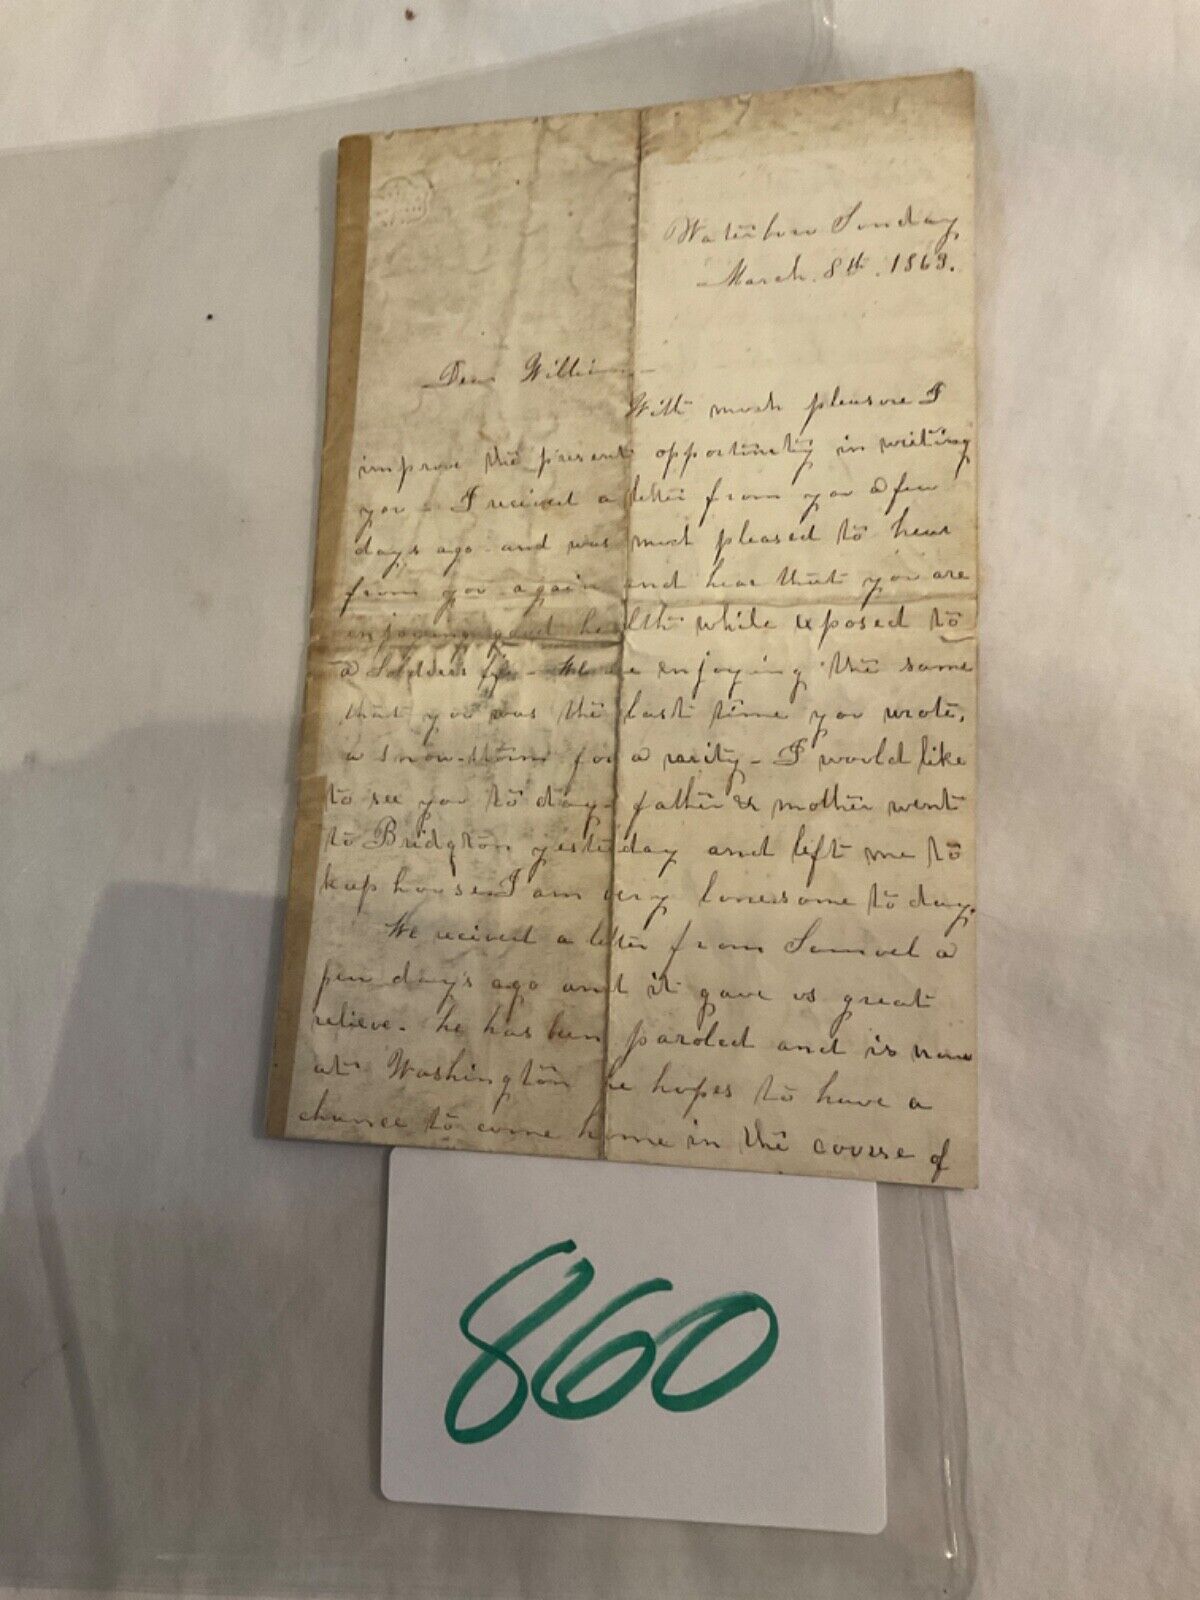 Waterboro Sunday
March. 8th. 1863.
Dear William
With much pleasure I
improve the present opportunity in writing
you - I recived a letter from you a few
days ago - and was much pleased to hear
from you again and hear that you are
enjoying good health while exposed to
a Soldiers life - We are enjoying the same
that you was the last time you wrote,
a snow-storm for a rarity - I would like
to see you to day - father & mother went
to Bridgton yesterday and left me to
keep house I am very lonesome to day.
We recived a letter from Samuel a
few days ago and it gave us great
relieve - he has ben paroled and is now
at Washington he hopes to have a
chance to come home in the course of
860